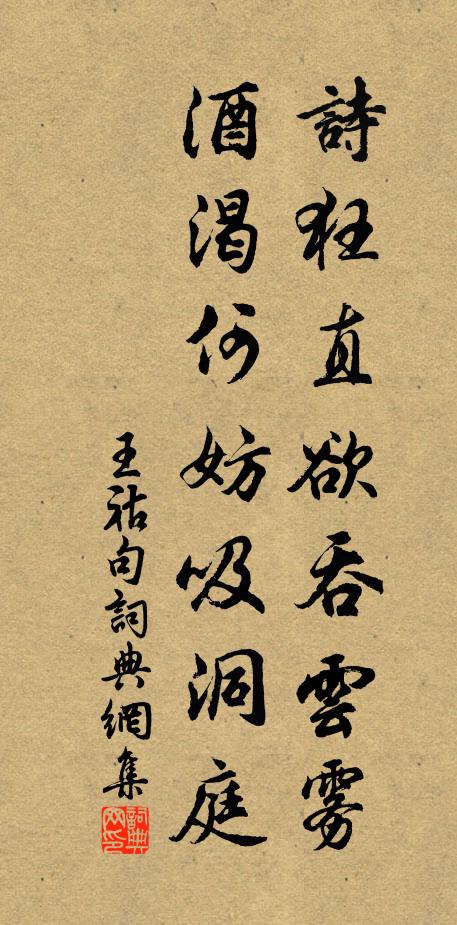 詩狂直欲吞雲霧
酒渴何妨吸洞庭
王祜句詞典網集
詞典网印